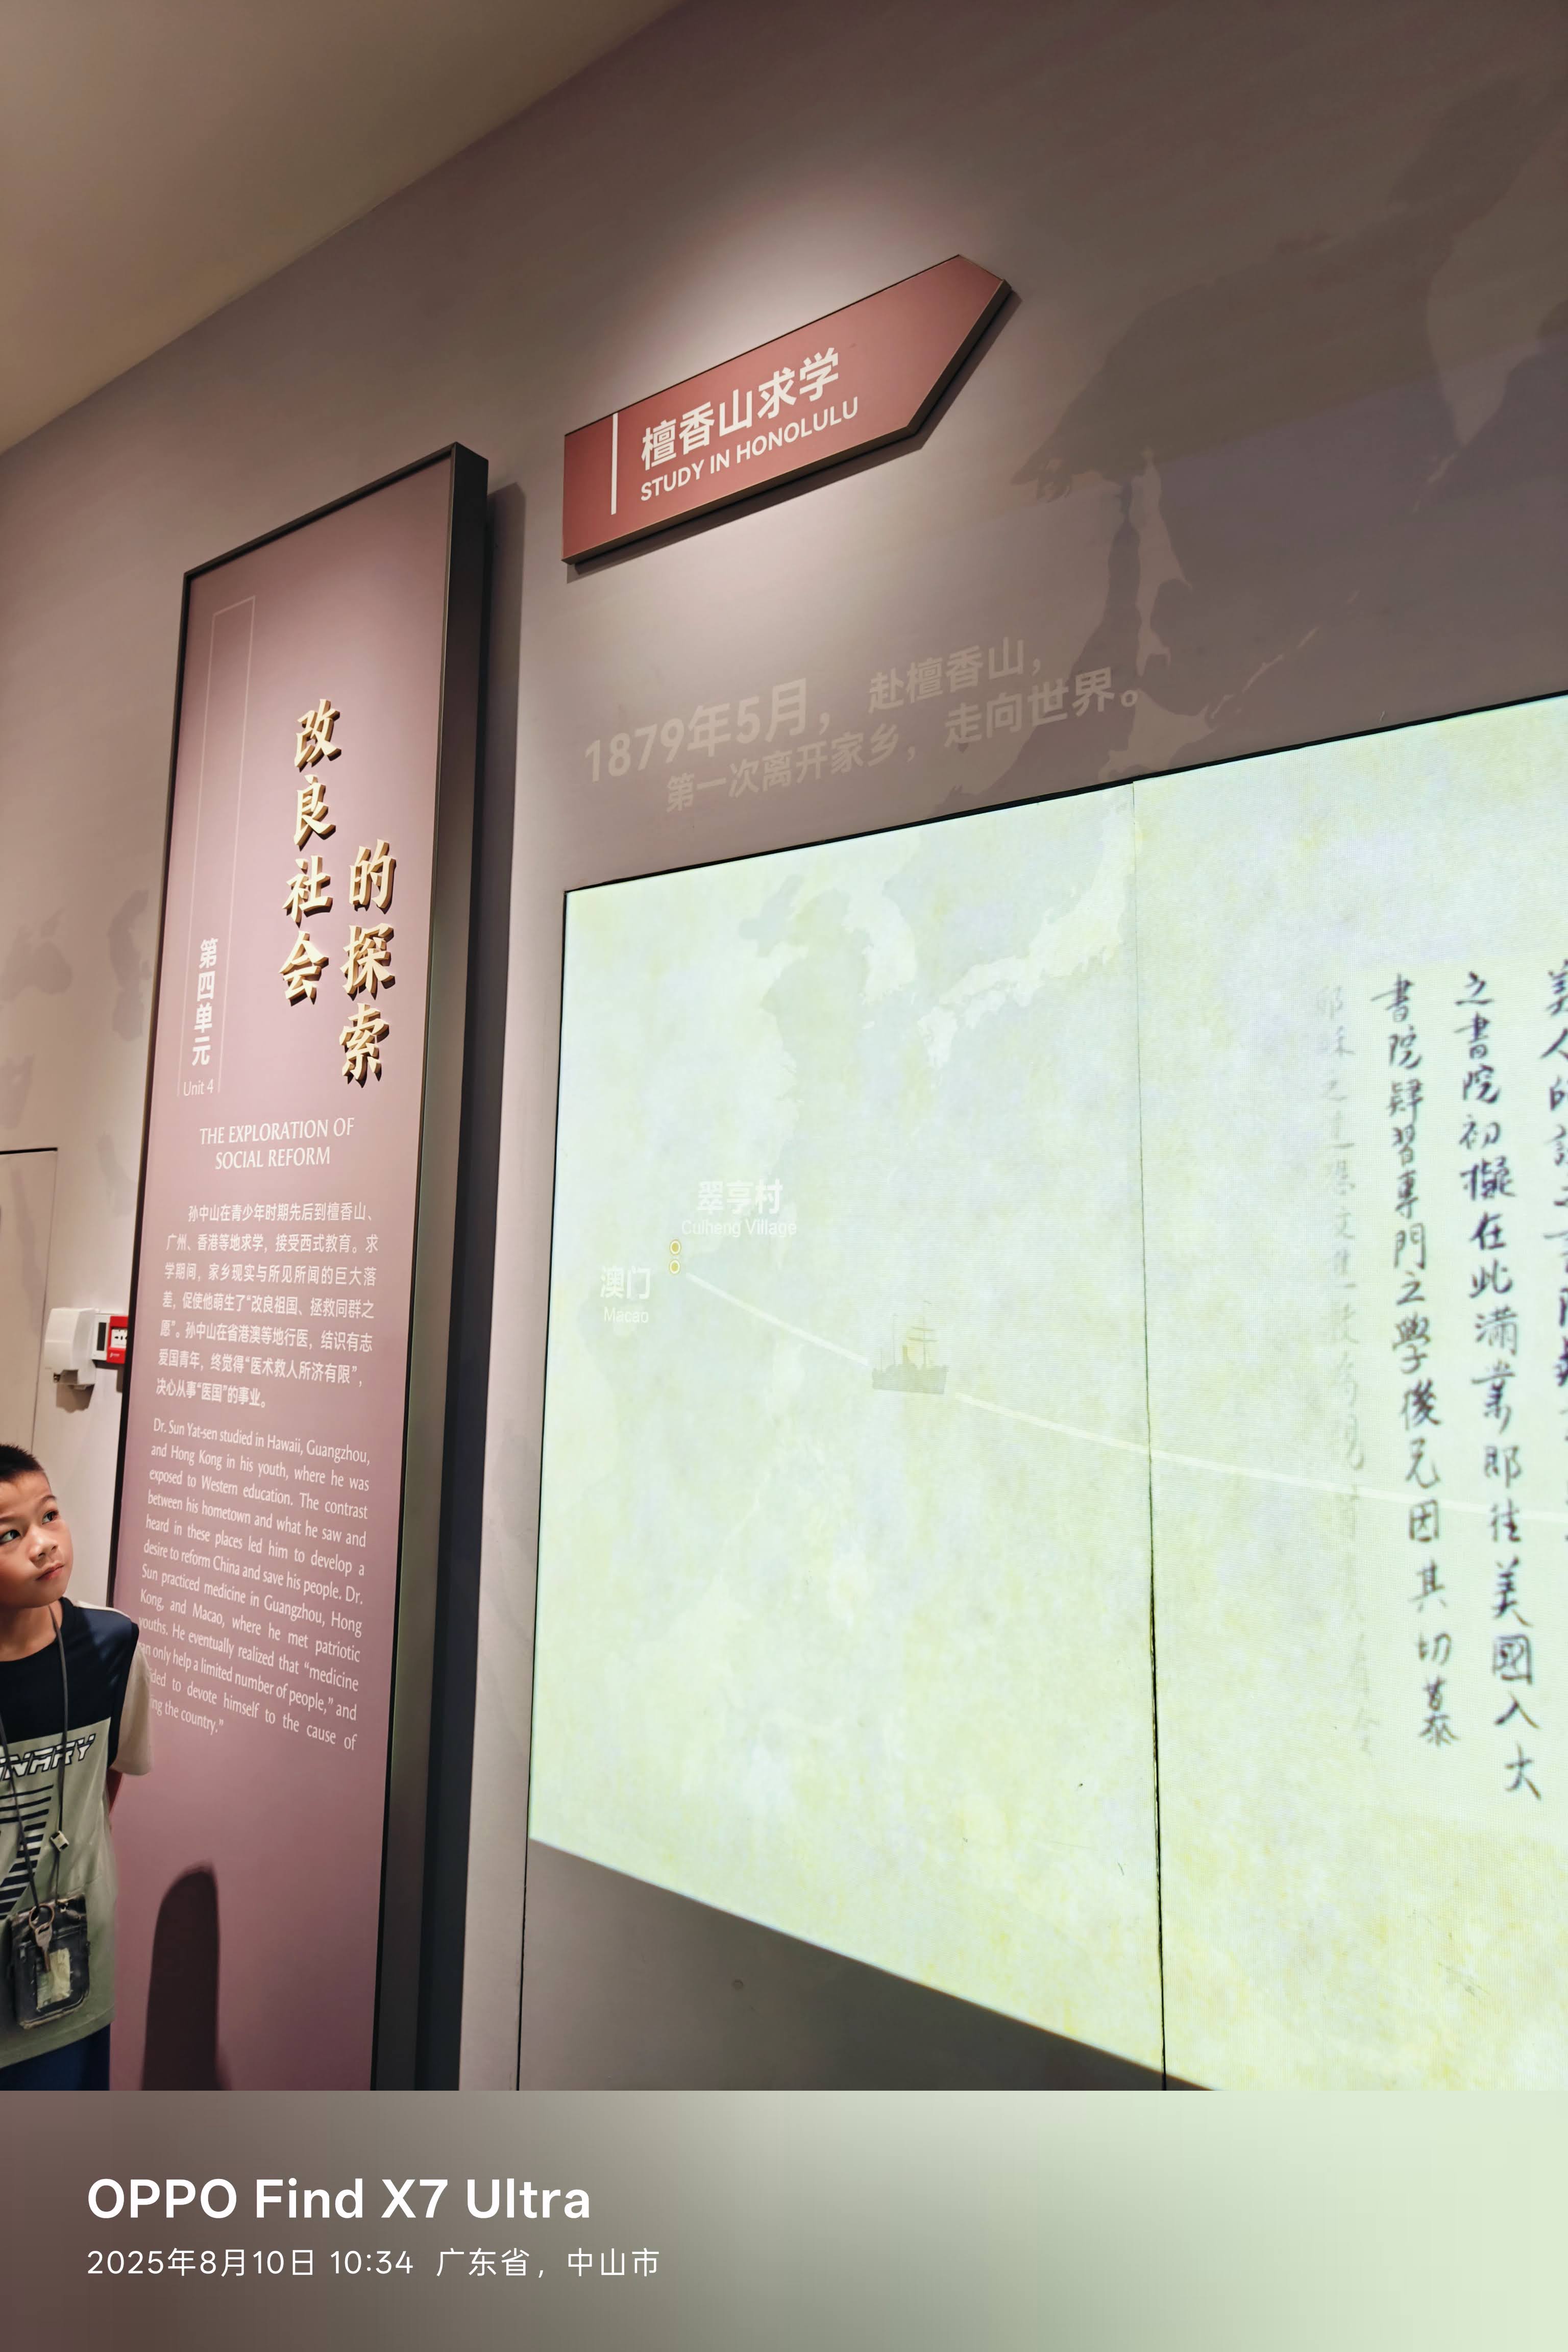 檀香山求学
STUDY IN HONOLULU
1879年5月，赴檀香山，
第一次离开家乡，走向世界。
改良社会
的探索
第四单元
Unit 4
THE EXPLORATION OF
SOCIAL REFORM
孙中山在青少年时期先后到檀香山、
广州、香港等地求学，接受西式教育。求
学期间，家乡现实与所见所闻的巨大落
差，促使他萌生了“改良祖国、拯救同群之
愿”。孙中山在省港澳等地行医，结识有志
爱国青年，终觉得“医术救人所济有限”，
决心从事“医国”的事业。
Dr. Sun Yat-sen studied in Hawaii, Guangzhou,
and Hong Kong in his youth, where he was
exposed to Western education. The contrast
between his hometown and what he saw and
heard in these places led him to develop a
desire to reform China and save his people. Dr.
Sun practiced medicine in Guangzhou, Hong
Kong, and Macao, where he met patriotic
youths. He eventually realized that “medicine
only help a limited number of people,” and
to devote himself to the cause of
the country.”
翠亨村
Cuiheng Village
澳门
Macao
之書院初擬在此滿業即往美國入大
書院肄習專門之學後兄因其切慕
OPPO Find X7 Ultra
2025年8月10日 10:34 广东省，中山市